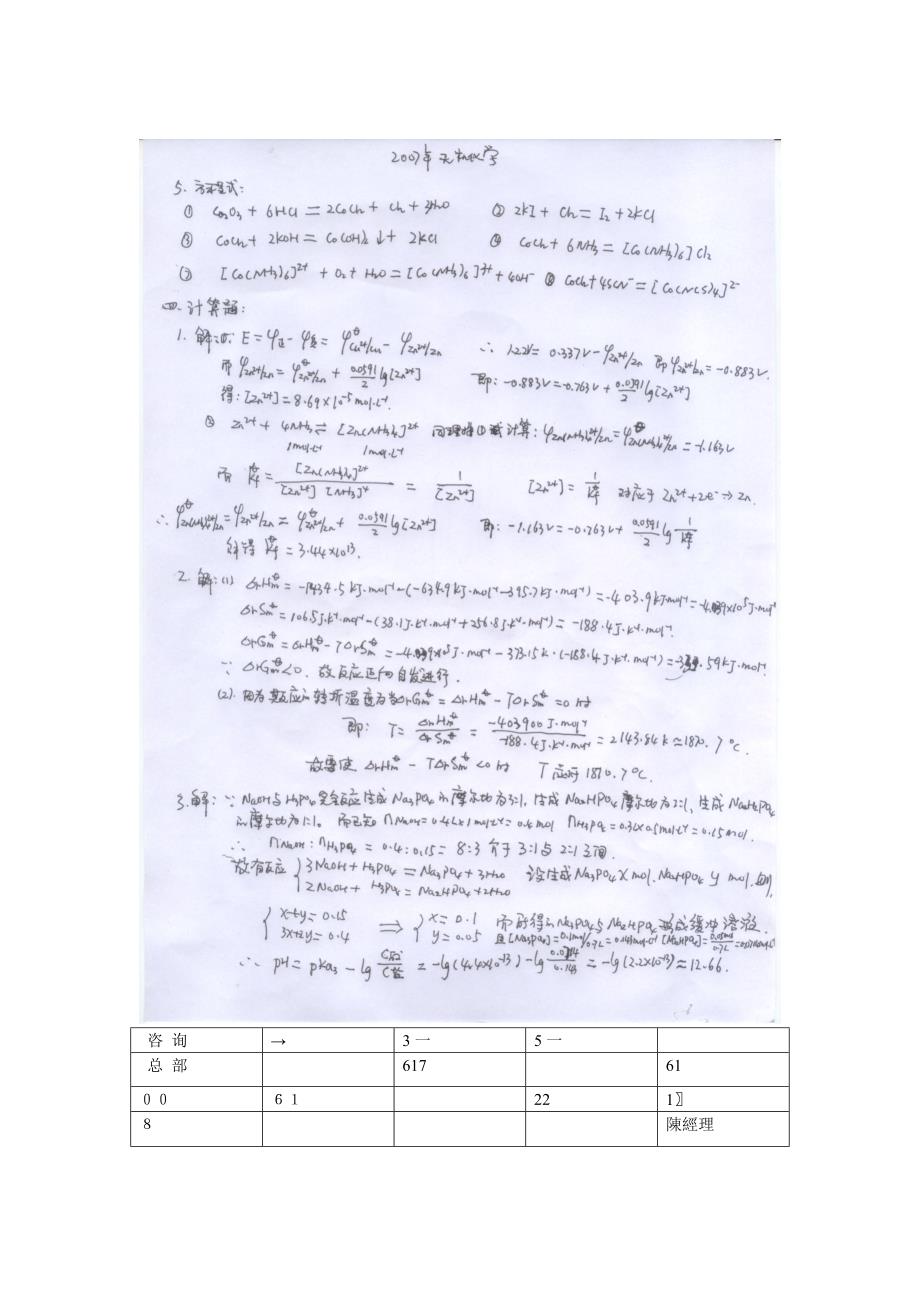 2007年无机化学
5. 方程式:
① Co₂O₃ + 6HCl = 2CoCl₂ + Cl₂ + 3H₂O ② 2KI + Cl₂ = I₂ + 2KCl
③ CoCl₂ + 2KOH = Co(OH)₂↓ + 2KCl ④ CoCl₂ + 6NH₃ = [Co(NH₃)₆]Cl₂
[Co(NH₃)₆]²⁺ + O₂ + H₂O = [Co(NH₃)₆]³⁺ + 4OH⁻ CoCl₂ + 4SCN⁻ = [Co(NCS)₄]²⁻
四. 计算题:
1. 解: ①. E = φ正 - φ负 = φ^θ Cu²⁺/Cu - φ Zn²⁺/Zn ∴ 1.22V = 0.337V - φ Zn²⁺/Zn 即 φ Zn²⁺/Zn = -0.883V.
而 φ Zn²⁺/Zn = φ^θ Zn²⁺/Zn + 0.0591/2 lg[Zn²⁺] 即: -0.883V = -0.763V + 0.0591/2 lg[Zn²⁺]
得: [Zn²⁺] = 8.69×10⁻⁵ mol·L⁻¹.
② Zn²⁺ + 4NH₃ ⇌ [Zn(NH₃)₄]²⁺ 同理 计算: φ Zn(NH₃)₄²⁺/Zn = φ^θ Zn(NH₃)₄²⁺/Zn = -1.163V
1mol·L⁻¹ 1mol·L⁻¹
而 Kf^θ = [Zn(NH₃)₄]²⁺/[Zn²⁺][NH₃]⁴ = 1/[Zn²⁺] [Zn²⁺] = 1/Kf^θ 对应于 Zn²⁺ + 2e⁻ → Zn.
∴ φ^θ Zn(NH₃)₄²⁺/Zn = φ Zn²⁺/Zn = φ^θ Zn²⁺/Zn + 0.0591/2 lg[Zn²⁺] 即: -1.163V = -0.763V + 0.0591/2 lg 1/Kf^θ
解得 Kf^θ = 3.44×10¹³.
2. 解: (1) ΔrHm^θ = -1434.5 kJ·mol⁻¹ - (-634.9 kJ·mol⁻¹ - 395.7 kJ·mol⁻¹) = -403.9 kJ·mol⁻¹ = -4.039×10⁵ J·mol⁻¹
ΔrSm^θ = 106.5 J·K⁻¹·mol⁻¹ - (38.1 J·K⁻¹·mol⁻¹ + 256.8 J·K⁻¹·mol⁻¹) = -188.4 J·K⁻¹·mol⁻¹.
ΔrGm^θ = ΔrHm^θ - TΔrSm^θ = -4.039×10⁵ J·mol⁻¹ - 373.15K·(-188.4 J·K⁻¹·mol⁻¹) = .59 kJ·mol⁻¹
∵ ΔrGm^θ < 0. 故反应正向自发进行.
(2). 因为其反应的转折温度为当 ΔrGm^θ = ΔrHm^θ - TΔrSm^θ = 0 时
即: T = ΔrHm^θ/ΔrSm^θ = -403900 J·mol⁻¹/-188.4 J·K⁻¹·mol⁻¹ = 2143.84K ≈ 1870.7℃.
故要使 ΔrHm^θ - TΔrSm^θ < 0 时 T 应 1870.7℃.
3. 解: ∵ NaOH与H₃PO₄完全反应生成Na₃PO₄的摩尔比为3:1, 生成Na₂HPO₄摩尔比为2:1, 生成NaH₂PO₄
的摩尔比为1:1. 而已知 nNaOH = 0.4L×1mol·L⁻¹ = 0.4mol nH₃PO₄ = 0.3L×0.5mol·L⁻¹ = 0.15mol.
∴ nNaOH : nH₃PO₄ = 0.4 : 0.15 = 8:3 介于3:1与2:1之间.
故有反应 { 3NaOH + H₃PO₄ = Na₃PO₄ + 3H₂O 设生成Na₃PO₄ x mol. Na₂HPO₄ y mol. 则,
2NaOH + H₃PO₄ = Na₂HPO₄ + 2H₂O
{ x+y = 0.15 ⟹ { x = 0.1 而所得的Na₃PO₄与Na₂HPO₄形成缓冲溶液.
3x+2y = 0.4 y = 0.05 且[Na₃PO₄] = 0.1mol/0.7L = 0.143mol·L⁻¹ [Na₂HPO₄] =
∴ pH = pKa₃ - lg C酸/C盐 = -lg(4.4×10⁻¹³) - lg 0.0714/0.143 = -lg(2.2×10⁻¹³) ≈ 12.66.
咨 询 → 3一 5一
总 部 617 61
0 0 6 1 22 1〗
8 陳經理